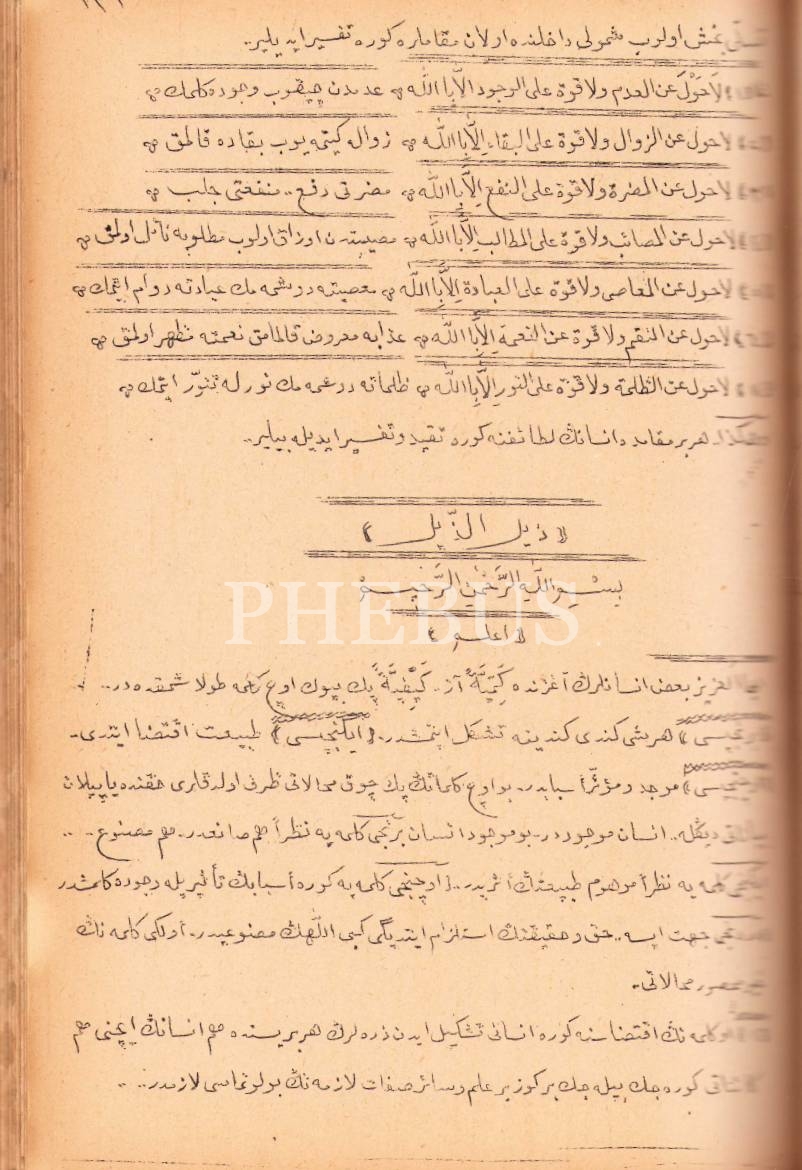 اولوب شمولى داخلنده اولان مقاملره كوره تفسير ايديلير..
لاَحَوْلَ عن العدم ولا قوة على الوجود اِلاَّ بِاللّٰه عدمدن چيقوب وجوده كلمك
لاحول عن الزوال ولا قوة على البقاء اِلاَّ بِاللّٰه زواله كيتمه يوب بقاده قالمق
لاحول عن المضرة ولا قوة على النفع اِلاَّ بِاللّٰه مضرتى دفع.. منفعتى جلب
لاحول عن المصائب ولا قوة على المطالب اِلاَّ بِاللّٰه مصيبتدن اوزاق اولوب مطلوبه نائل اولمق
لاحول عن المعاصى ولا قوة على العبادة اِلاَّ بِاللّٰه معصيته دوشمه مك عبادته دوام ايتمك
لاحول عن النقم ولا قوة عن النعمة اِلاَّ بِاللّٰه عذابه معروض قالمامق نعمته مظهر اولمق
لاحول عن الظلمة ولا قوة على النور اِلاَّ بِاللّٰه ظلماته دوشمه مك نورله تنوّر ايتمك
هكذا هربر مقامده انسانڭ لطائفنه كوره تقيد وتفسير ايديله بيلير..
﴿ ذيل الذّيل ﴾
بِسْمِ اللّٰهِ الرَّحْمٰنِ الرَّحِيمِ
PHEBUS
﴿ اعلم ﴾
العزيز بعض انسانلرڭ آغزنده كَمِّيَّةً آز.. كَيْفِيَّةً پك بيوك اوچ كلمه طولاشمقده در..
هرشى كندى كندينه تشكل ايتمشدر.. ﴿ ايكنجيسى ﴾ طبيعت اقتضا ايتدى..
موجد ومؤثر أسبابدر.. بو اوچ كلمانڭ پك چوق محالاتى ظرف اولدقلرى حقنده ياپيلان
ديڭله.. انسان موجوددر.. بو موجود انسان برنجى كلمه يه نظراً هم صانعدر.. هم مصنوع..
كلمه يه نظراً موهوم طبيعتڭ أثريدر.. اوچنجى كلمه يه كوره أسبابڭ تأثيريله وجوده كلمشدر
جهت ايسه.. حق وحقيقتڭ استلزام ايتديگى كبى اللّٰهڭ مصنوعيدر.. أولكى كلمه نڭ
محالاتى..
كلمه نڭ اقتضاسنه كوره انسانى تشكيل ايدن ذره لرڭ هربريسنده هم انسانڭ ايچنى هم
كوره جك بيله جك بر كوز بر علم وسائر صفات لازمه نڭ بولونماسى لازمدر..